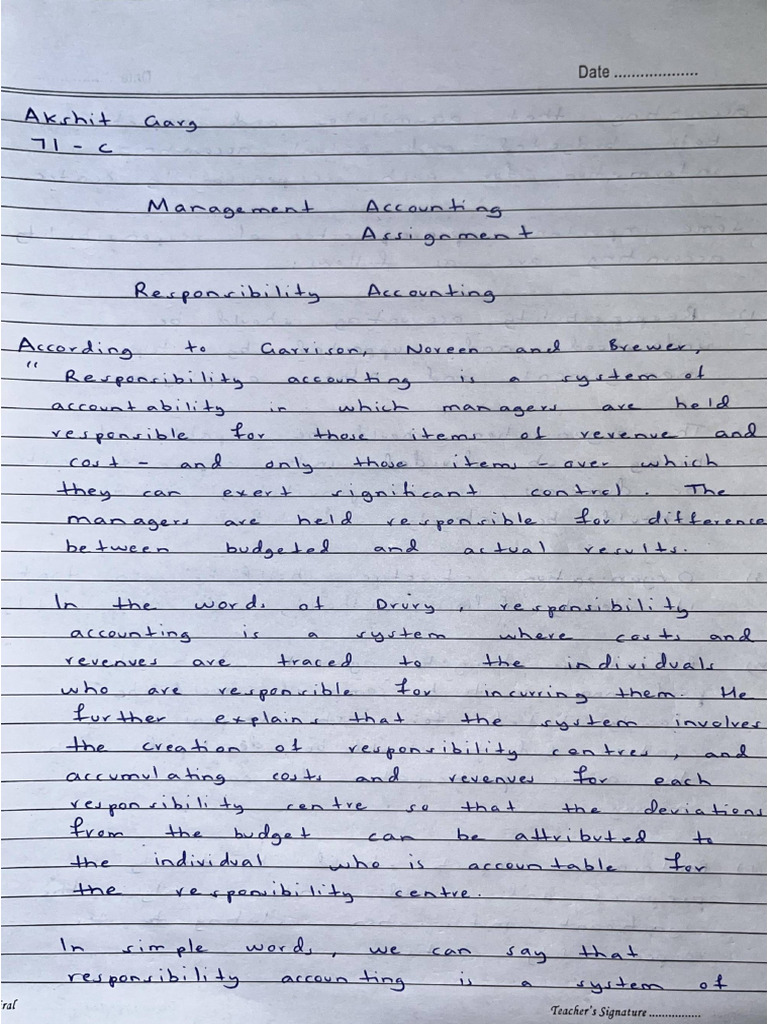 Date ...................
Akshit Garg
71 - C
Management Accounting
Assignment
Responsibility Accounting
According to Garrison, Noreen and Brewer,
"Responsibility accounting is a system of
accountability in which managers are held
responsible for those items of revenue and
cost - and only those items - over which
they can exert significant control. The
managers are held responsible for difference
between budgeted and actual results.
In the words of Drury, responsibility
accounting is a system where costs and
revenues are traced to the individuals
who are responsible for incurring them. He
further explains that the system involves
the creation of responsibility centres, and
accumulating costs and revenues for each
responsibility centre so that the deviations
from the budget can be attributed to
the individual who is accountable for
the responsibility centre.
In simple words, we can say that
responsibility accounting is a system of
iral
Teacher's Signature ................